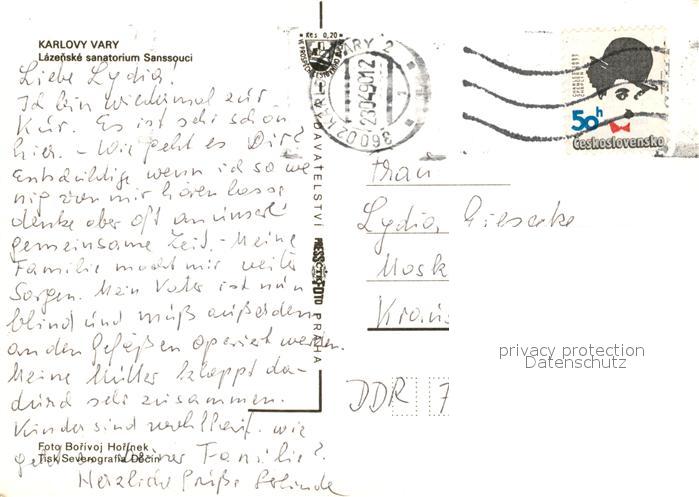 KARLOVY VARY
Lázeňské sanatorium Sanssouci
Liebe Lydia!
Ich bin wiedermal zur
Kur. Es ist sehr schön
hier. - Wie geht es Dir?
Entschuldige wenn ich so we
nig von mir hören lasse
denke aber oft an unsere
gemeinsame Zeit. - Meine
Familie macht mir weiter
Sorgen. Mein Vater ist nun
blind und muß außerdem
an den Gefäßen operiert werden.
Meine Mutter klappt da-
durch sehr zusammen.
Kinder sind wie
Foto Bořivoj Hořínek
Tisk Severografia Děčín
Familie?
Herzliche Grüße
VYDAVATELSTVÍ PRESSFOTO PRAHA
Kčs 0,20
360 02 VARY 2
23.04.90 12
50h
Československo
Frau
Lydia Giesecke
Mosk
Kraus
DDR 7
privacy protection
Datenschutz